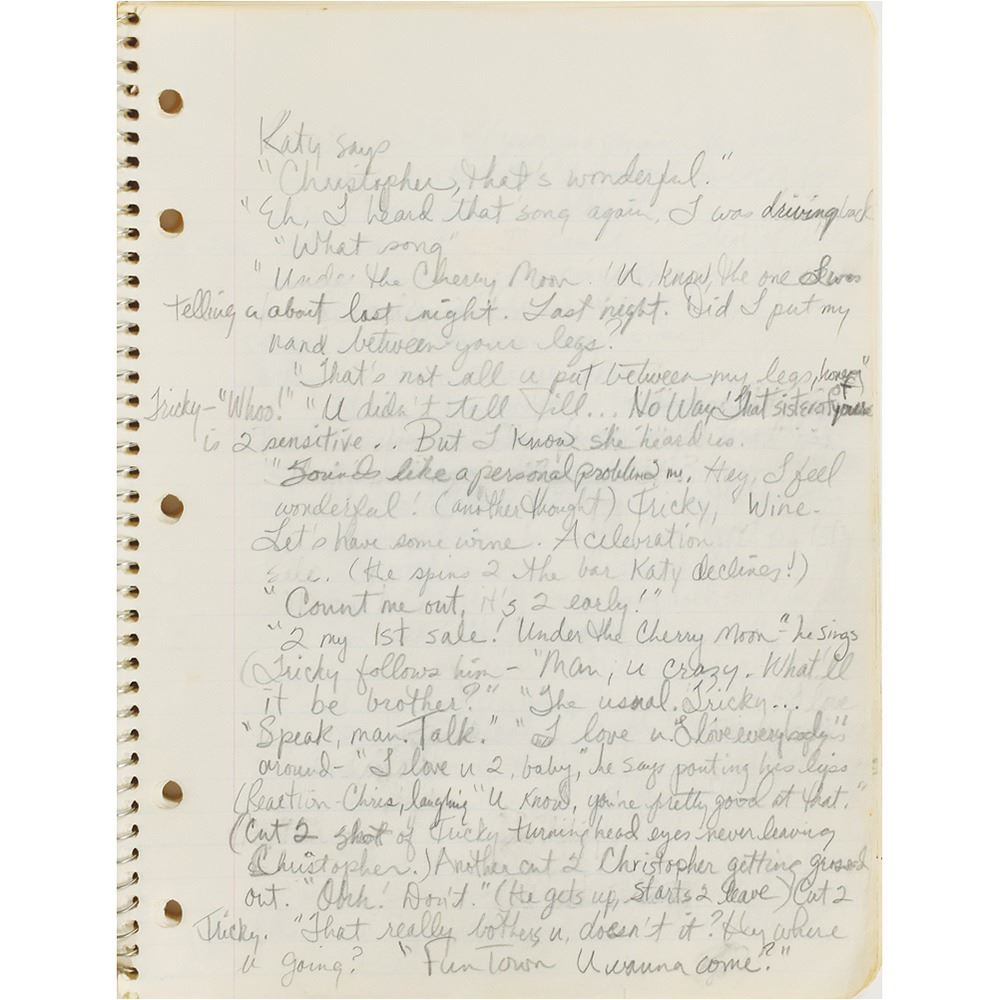 Katy says
"Christopher, that's wonderful."
"Eh, I heard that song again, I was driving back
"What song"
"Under the Cherry Moon. U know, the one I was
telling u about last night. Last night. Did I put my
hand between your legs?
"That's not all u put between my legs, honey"
Tricky - "Whoo!" "U didn't tell Jill... No Way! That sister of yours
is 2 sensitive.. But I know she heard us.
"Sounds like a personal problem 2 me. Hey, I feel
wonderful! (another thought) Tricky, Wine-
Let's have some wine. A celebration
sale. (He spins 2 the bar Katy declines!)
"Count me out, it's 2 early!"
"2 my 1st sale! Under the Cherry Moon-" he sings
(Tricky follows him - "Man, u crazy. What'll
it be brother?" "The usual. Tricky... love
"Speak, man. Talk." "I love u. "I love everybody"
around- "I love u 2, baby," he says pouting his lips
(Reaction - Chris, laughing "U know, you're pretty good at that."
(Cut 2 shot of Tricky turning head eyes never leaving
Christopher.) Another cut 2 Christopher getting grossed
out. "Ohh! Don't." (He gets up, starts 2 leave) Cut 2
Tricky. "That really bothers u, doesn't it? Hey where
u going? "Fun Town U wanna come?"